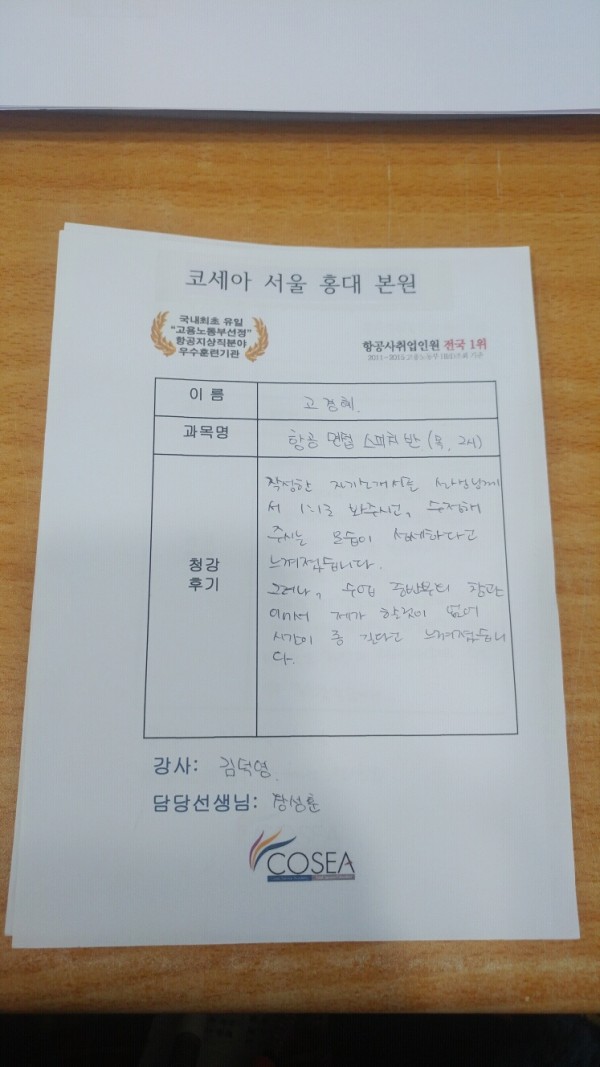 코세아 서울 홍대 본원
국내최초 유일
"고용노동부선정"
항공지상직분야
우수훈련기관
항공사취업인원 전국 1위
이 름
고경혜.
과목명
항공 면접 스피치 반 (목, 2시)
청강
후기
작성한 자기소개서를 선생님께
서 1:1로 봐주시고, 수정해
주시는 모습이 섬세하다고
느껴졌습니다.
그러나, 수업 중반부터 참관
이여서 제가 할것이 없어
시간이 좀 길다고 느껴졌습니
다.
강사: 김덕영.
담당선생님: 장성훈
COSEA